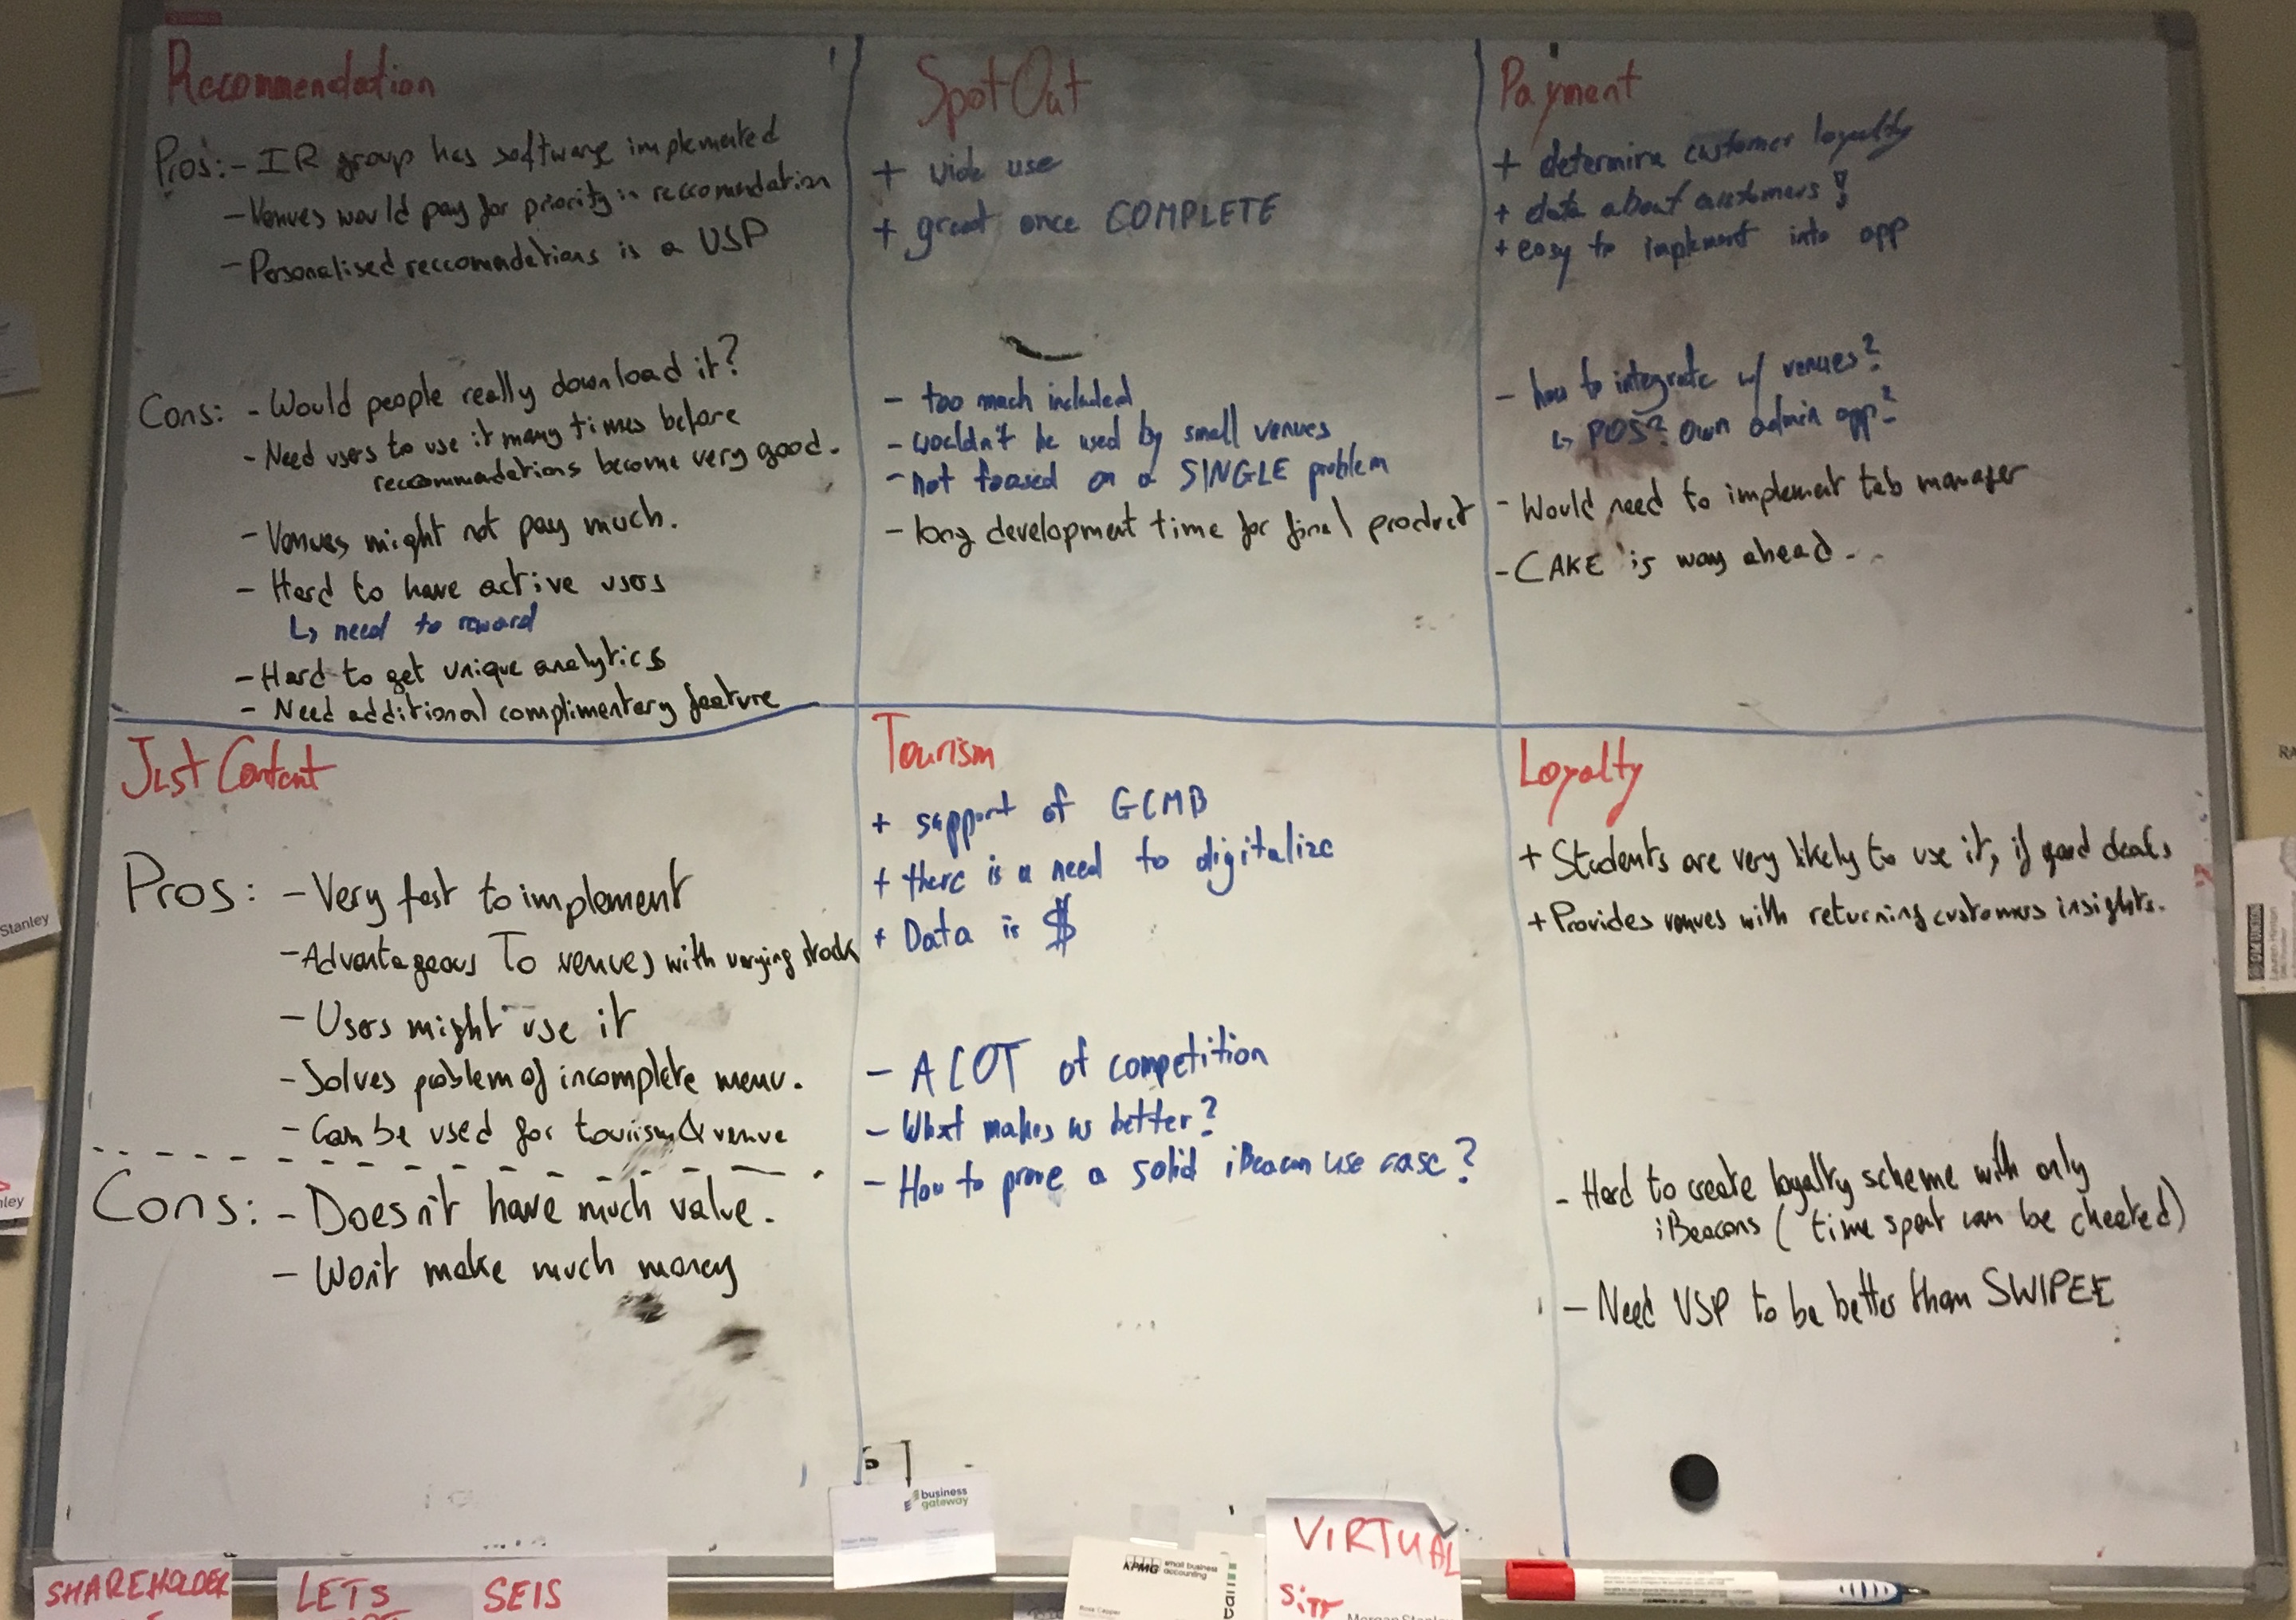 Recommendation
Pros: - IR group has software implemented
- Venues would pay for priority in reccomendation
- Personalised reccomendations is a USP
Cons: - Would people really download it?
- Need users to use it many times before
reccommendations become very good.
- Venues might not pay much.
- Hard to have active users
↳ need to reward
- Hard to get unique analytics
- Need additional complimentary feature
SpotOut
+ wide use
+ great once COMPLETE
- too much included
- wouldn't be used by small venues
- not focused on a SINGLE problem
- long development time for final product
Payment
+ determine customer loyalty
+ data about customers!
+ easy to implement into app
- how to integrate w/ venues?
↳ POS? own admin app?
- Would need to implement tab manager
- CAKE is way ahead...
Just Content
Pros: - Very fast to implement
- Advantageous To venues with varying stock
- Users might use it
- Solves problem of incomplete menu.
- Can be used for tourism & venue
Cons: - Doesn't have much value.
- Won't make much money
Tourism
+ support of GCMB
+ there is a need to digitalize
+ Data is $
- A LOT of competition
- What makes us better?
- How to prove a solid iBeacon use case?
Loyalty
+ Students are very likely to use it, if good deals
+ Provides venues with returning customers insights.
- Hard to create loyalty scheme with only
iBeacons (time spent can be cheated)
- Need USP to be better than SWIPEE
Stanley
business
gateway
KPMG small business
accounting
VIRTUAL
SHAREHOLDER
LETS
SEIS
Morgan Stanley